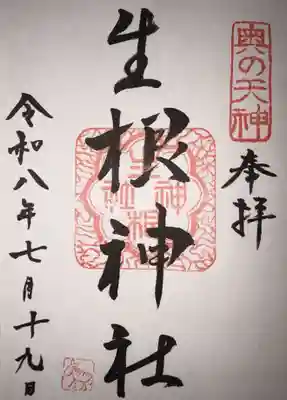 奥の天神
奉拝
生根神社
生根神社
令和八年七月十九日